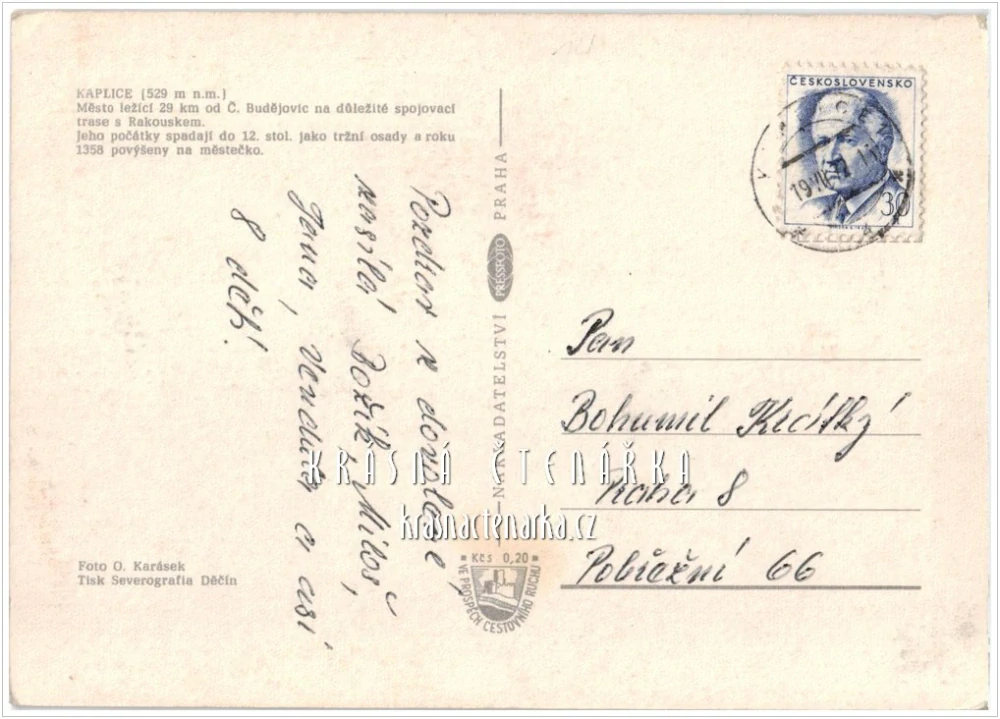 KAPLICE (529 m n.m.)
Město ležící 29 km od Č. Budějovic na důležité spojovací
trase s Rakouskem.
Jeho počátky spadají do 12. stol. jako tržní osady a roku
1358 povýšeny na městečko.
Pozdrav z dovolené,
zasílá Božík, Miloš,
Jana, Vendula a asi
8 dětí.
Foto O. Karásek
Tisk Severografia Děčín
NAKLADATELSTVÍ PRESSFOTO PRAHA
Kčs 0,20
VE PROSPĚCH CESTOVNÍHO RUCHU
ČESKOSLOVENSKO
30
Pan
Bohumil Krátký
Praha 8
Pobřežní 66
KRÁSNÁ ČTENÁŘKA
krasnactenarka.cz